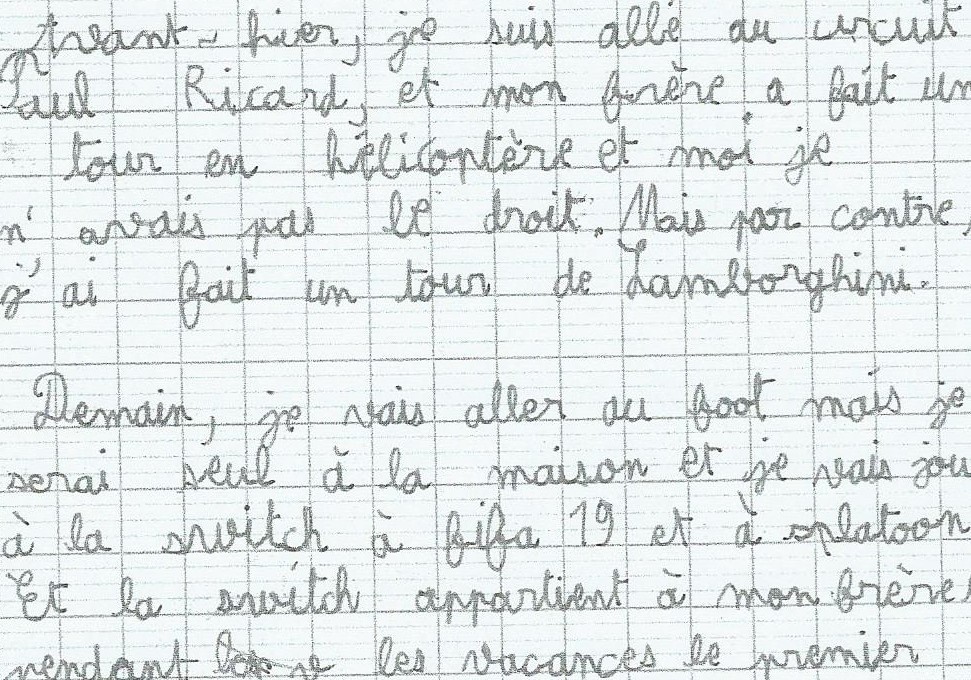 Avant-hier, je suis allé au circuit
Paul Ricard, et mon frère a fait un
tour en hélicoptère et moi je
n'avais pas le droit. Mais par contre,
j'ai fait un tour de Lamborghini.
Demain, je vais aller au foot mais je
serai seul à la maison et je vais jou
à la switch à fifa 19 et à splatoon
Et la switch appartient à mon frère,
pendant les vacances le premier